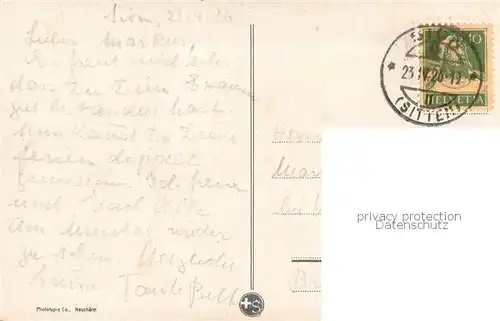 Sion, 23.4.26
Lieber Markus,
Es freut mich sehr
dass Du Dein Examen
gut bestanden hast.
Nun kannst Du Deine
Ferien doppelt
geniessen. Ich freue
mich Euch Alle
am wieder
zu sehen. Herzlichst
Deine Tante Beth
Phototypie Co., Neuchâtel
+S
SION
10
23.IV.26.12
HELVETIA
(SITTEN)
Mar
B
privacy protection
Datenschutz